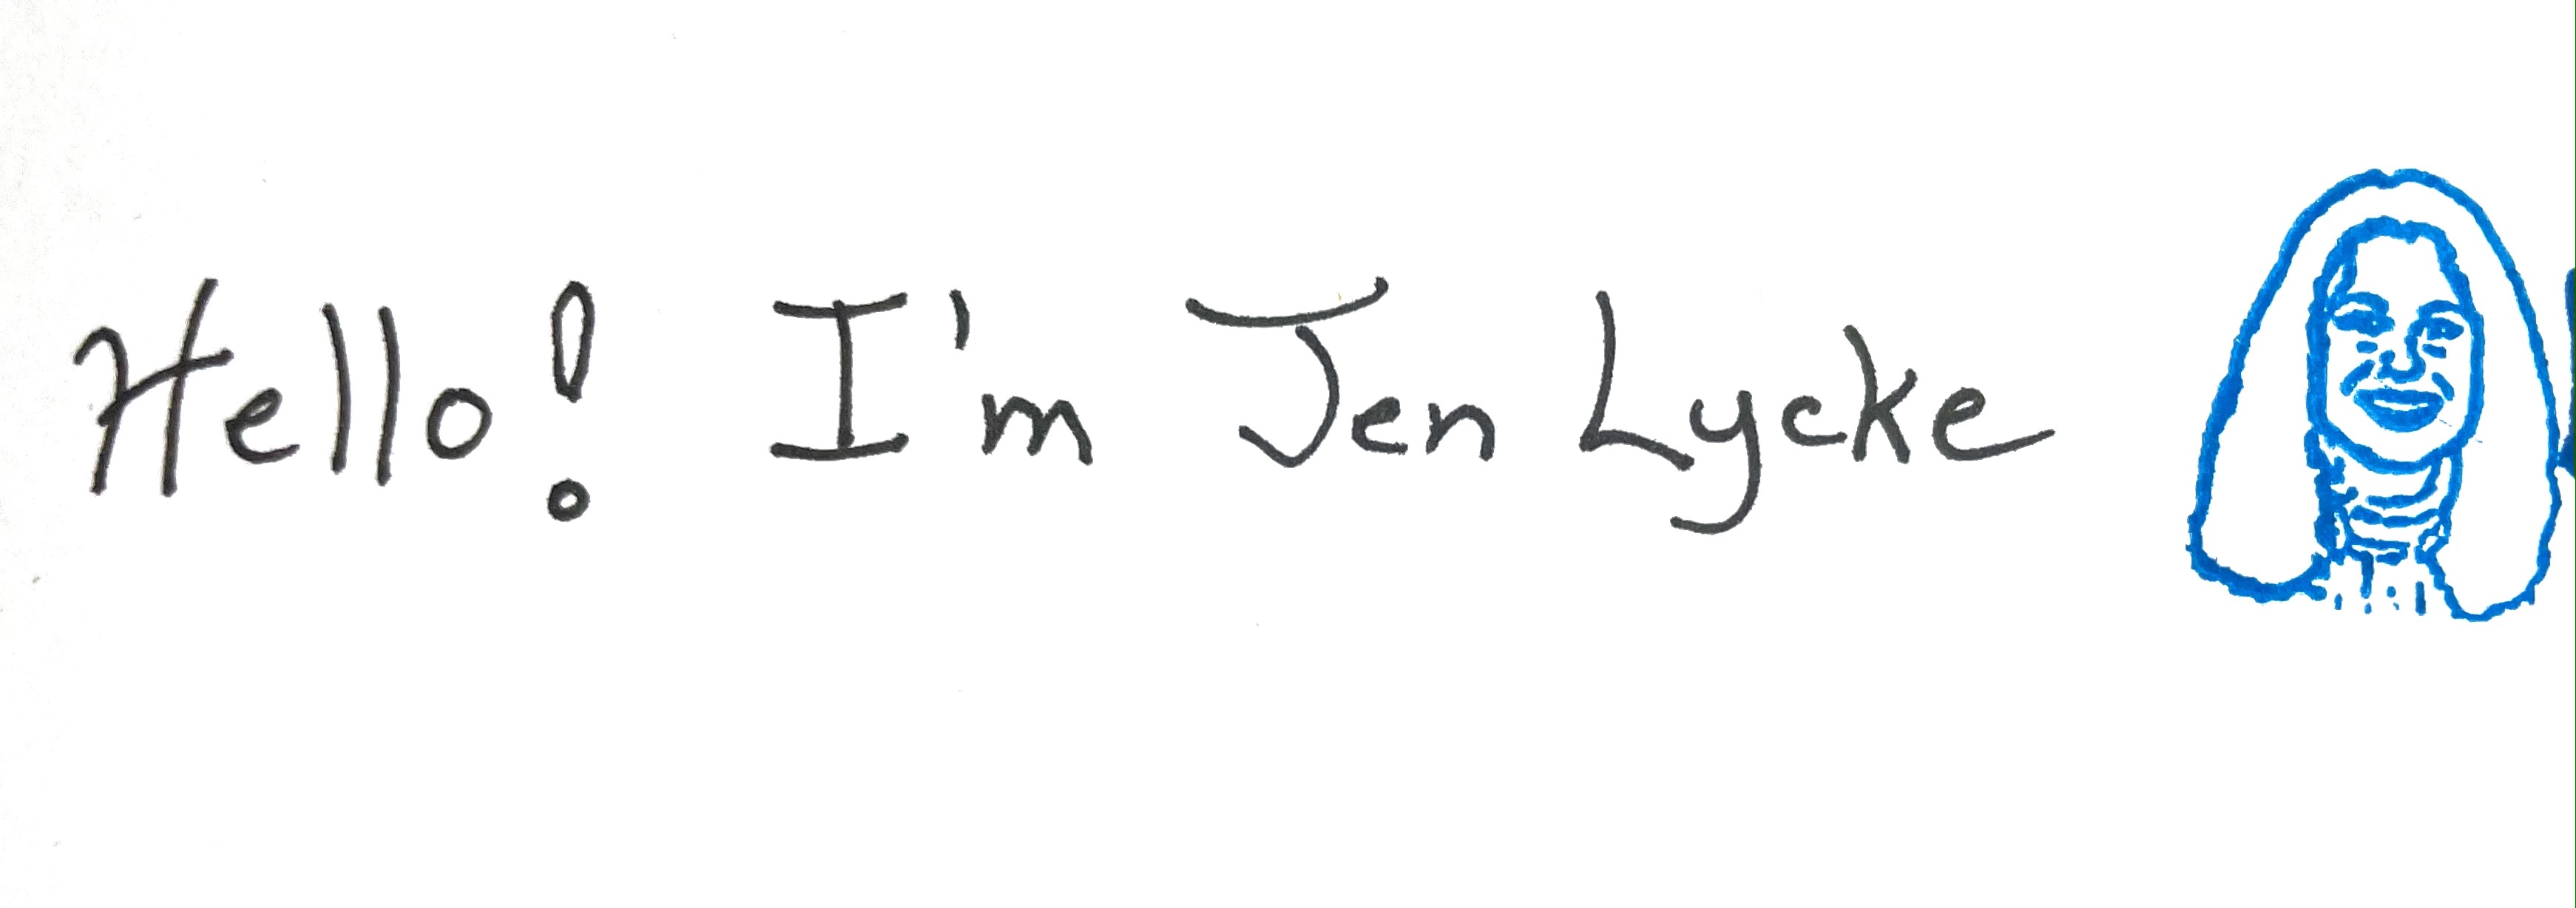 Hello! I'm Jen Lycke